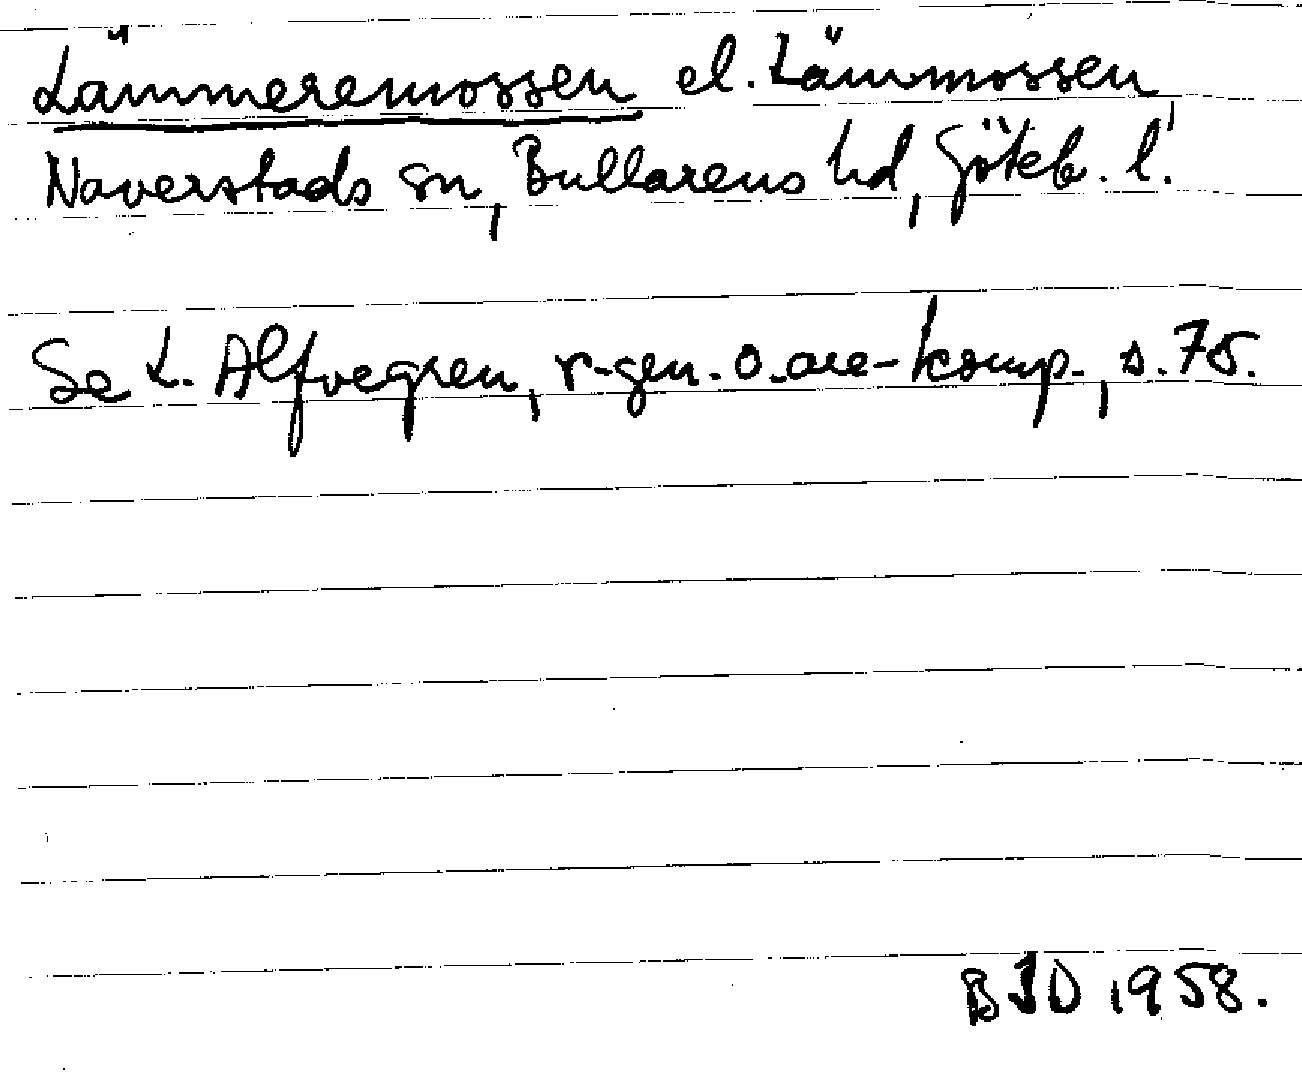 Lämmeremossen el. Lämmossen,
Naverstads sn, Bullarens hd, Göteb. l.
Se L. Alfvegren, r-gen. o. are-komp., s. 75.
BID 1958.